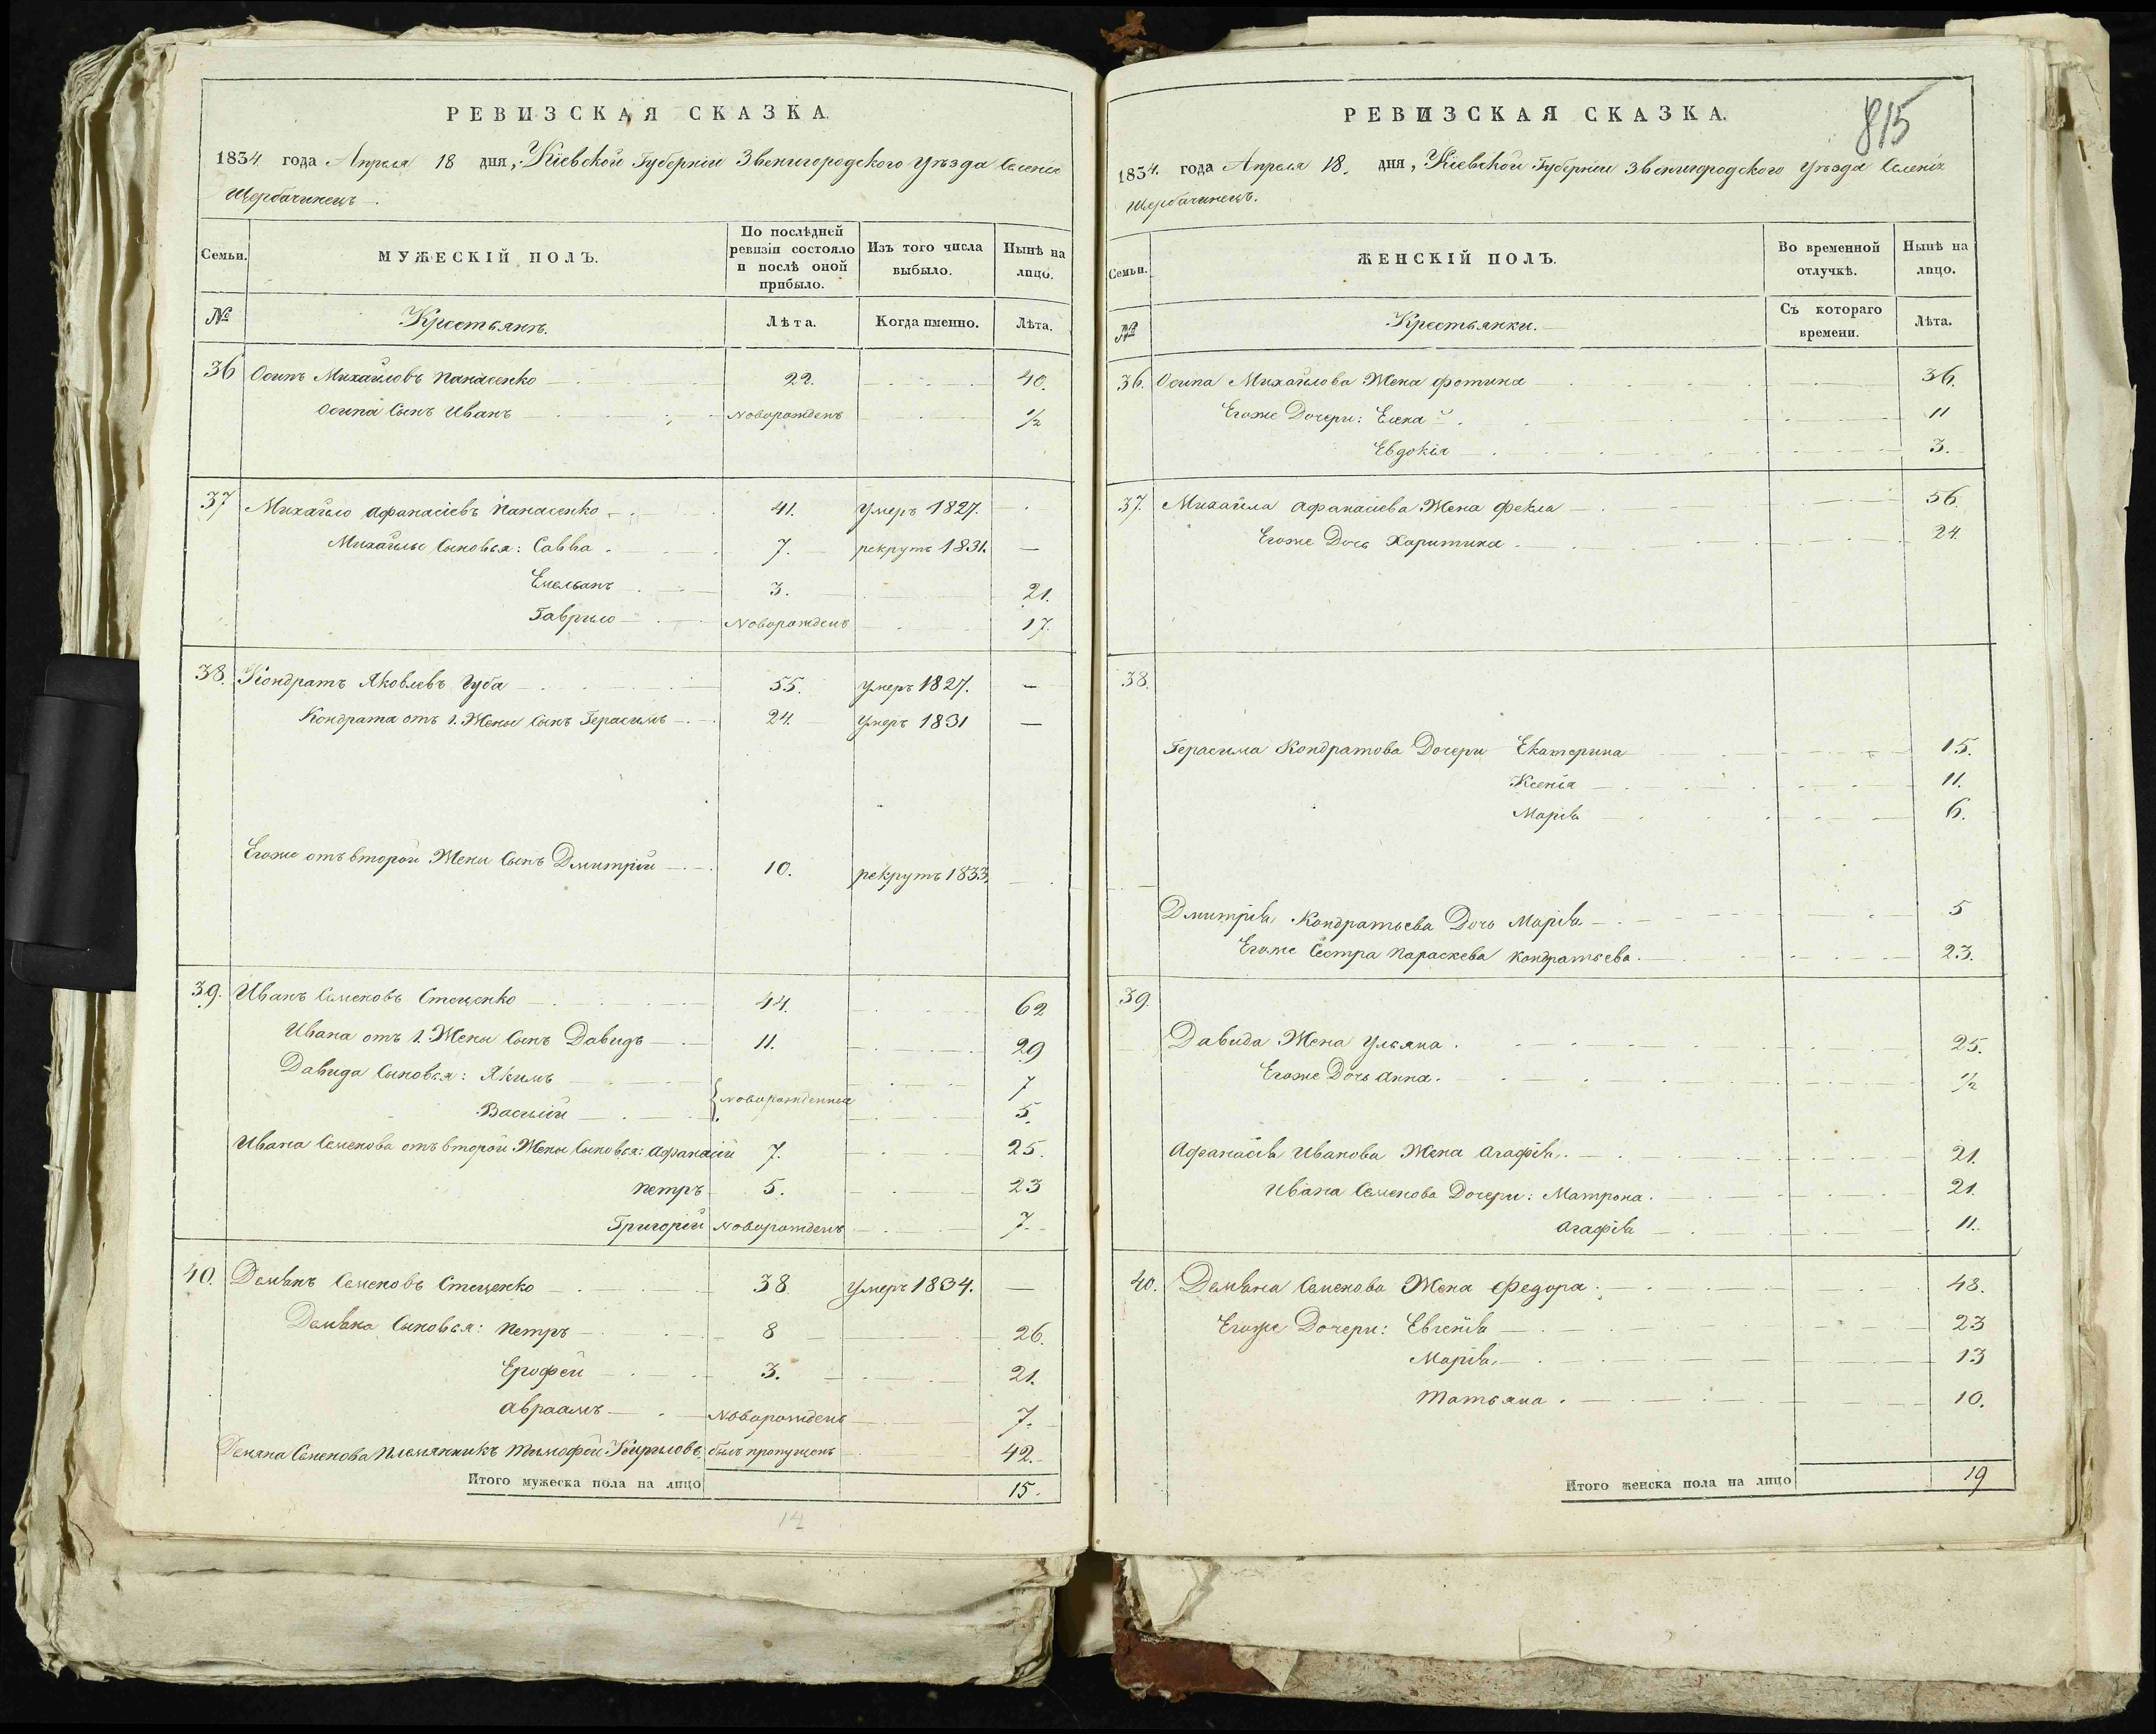 РЕВИЗСКАЯ СКАЗКА.
1834 года Апреля 18 дня, Кіевской Губерніи Звенигородского Уѣзда Селенія
Щербачинецъ.
Семьи.
МУЖЕСКІЙ ПОЛЪ.
По послѣдней ревизіи состояло и послѣ оной прибыло.
Изъ того числа выбыло.
Нынѣ на лицо.
№
Крестьянъ.
Лѣта.
Когда именно.
Лѣта.
36 Осипъ Михайловъ Панасенко 22. 40.
Осипа Сынъ Иванъ Новорожденъ 1/2
37 Михайло Афанасіевъ Панасенко 41. Умеръ 1827.
Михайлы Сыновья: Савва. 7. рекрутъ 1831. —
Емельанъ 3. 21.
Гаврило Новорожденъ 17.
38. Кондратъ Яковлевъ Губа 55. умеръ 1827. —
Кондрата отъ 1. Жены Сынъ Герасимъ 24. Умеръ 1831 —
Егоже отъ второй Жены Сынъ Дмитрій 10. рекрутъ 1833.
39. Иванъ Семеновъ Стеценко 44. 62
Ивана отъ 1. Жены Сынъ Давидъ 11. 29
Давида Сыновья: Якимъ Новорожденные 7
Василій 5.
Ивана Семенова отъ второй Жены Сыновья: Афанасій 7. 25.
Петръ 5. 23
Григорій Новорожденъ 7.
40. Демьянъ Семеновъ Стеценко 38. Умеръ 1834. —
Демьяна Сыновья: Петръ 8 26.
Ерофей 3. 21.
Авраамъ Новорожденъ 7.
Демяна Семенова Племянникъ Тимофей Кириловъ былъ пропущенъ 42.
Итого мужеска пола на лицо 15.
14
815
РЕВИЗСКАЯ СКАЗКА.
1834. года Апреля 18. дня, Кіевской Губерніи Звенигородского Уѣзда Селенія
Щербачинецъ.
Семьи.
ЖЕНСКІЙ ПОЛЪ.
Во временной отлучкѣ.
Нынѣ на лицо.
№
Крестьянки.
Съ котораго времени.
Лѣта.
36. Осипа Михайлова Жена Фотина 36.
Егоже Дочери: Елена 11
Евдокія 3.
37. Михайла Афанасіева Жена Фекла 56.
Егоже Дочь Харитина. 24.
38.
Герасима Кондратова Дочери Екатерина 15.
Ксенія 11.
Марія 6.
Дмитрія Кондратьева Дочь Марія. 5
Егоже Сестра Параскева Кондратьева. 23.
39.
Давида Жена Ульяна. 25.
Егоже Дочь Анна. 1/2
Афанасія Иванова Жена Агафія. 21.
Ивана Семенова Дочери: Матрона. 21.
Агафія 11.
40. Демьяна Семенова Жена Федора. 48.
Егоже Дочери: Евгенія 23
Марія. 13
Татьяна. 10.
Итого женска пола на лицо 19